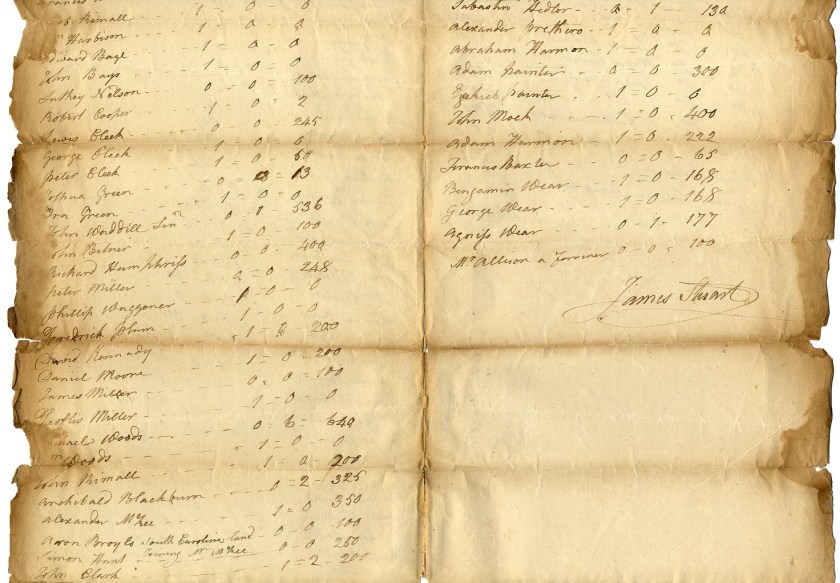 Francis
ob Kimall - - 1 - 0 - 0
m Harbison - - 1 - 0 - 0
Edward Baze - - 1 = 0 - 0
John Bays - - - 1 - 0 - 0
Luthey Nelson - - 0 - 0 = 100
Robert Cooper - - 1 = 0 = 2
Lewis Cleek - - 0 - 0 - 245
George Cleek - - 1 = 0 - 0
Peter Cleek - - 1 = 0 - 50
Joshua Green - - 0 = 0 = 13
Ira Green - - 1 - 0 - 0
John Waddill Senr 0 1 - 536
John Bitner - - 1 = 0 - 100
Richard Humphriss - 0 0 - 400
Peter Miller - - 0 = 0 - 248
Phillip Waggoner - - 1 - 0 - 0
Fredrick Plum - - 1 - 0 - 0
David Kennady - - 1 = 2 - 200
Daniel Moore - - 1 = 0 - 200
James Miller - - 0 - 0 = 100
Theoflis Miller - - 1 = 0 - 0
Michael Woods - - 0 = 6 = 640
m Woods - - 1 = 0 - 0
John Kimall - - 1 = 0 - 200
Archibald Blackburn - - 0 = 2 - 325
Alexander McKee - - 1 = 0 350
Aaron Broyls South Carolina land - 0 - 0 - 100
Simon Hunt Joining Mr McKee 0 - 0 250
John Clark - - 1 = 2 - 200
Hedler - 0 - 1 - 130
Alexander Prethero - - 1 - 0 - 0
Abraham Harmon - 1 - 0 - 0
Adam Painter - - 0 = 0 - 300
Ezekiel Painter - - 1 = 0 - 0
John Mock - - 1 = 0 - 400
Adam Harmon - - 1 = 0 - 222
Francis Baxter - - 0 = 0 - 65
Bengamin Wear - - 1 = 0 - 168
George Wear - - 1 = 0 - 168
Agnriss Wear - - 0 - 1 - 177
Mr Allison a Forriner 0 - 0 = 100
James Stuart